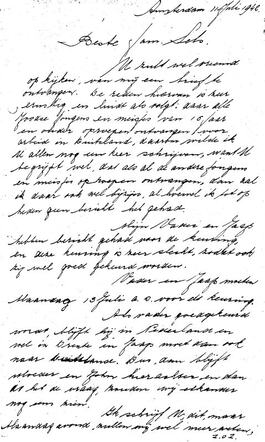 Amsterdam 11 Juli 1942
Beste Fam
U zult wel vreemd
op kijken, van mij een brief te
ontvangen. De reden hiervan is heel
ernstig en luidt als volgt: daar alle
Joodse jongens en meisjes van
en ouder oproepen ontvangen voor
arbeid in Duitsland, daarom wilde ik
U allen nog een keer schrijven, want U
begrijpt wel, dat als al de andere jongens
en meisjes oproepen ontvangen, dan zal
ik daar ook wel bijzijn, al hoewel ik tot op
heden geen bericht heb gehad.
Mijn Vader en Jaap
hebben bericht gehad voor de keuring,
en deze keuring is zeer slecht, zodat ook
zij wel goed gekeurd worden.
Vader en Jaap moeten
Maandag 13 Juli a.s. voor de keuring.
Als vader goedgekeurd
wordt, blijft hij in Nederland en
wel in en Jaap moet dan ook
naar Dus, dan blijft
moeder en John hier achter en dan
is het de vraag, zouden wij elkander
nog ons zien.
Ik schrijf U, dit, maar
Maandag avond, zullen wij wel meer weten,
z.o.z.